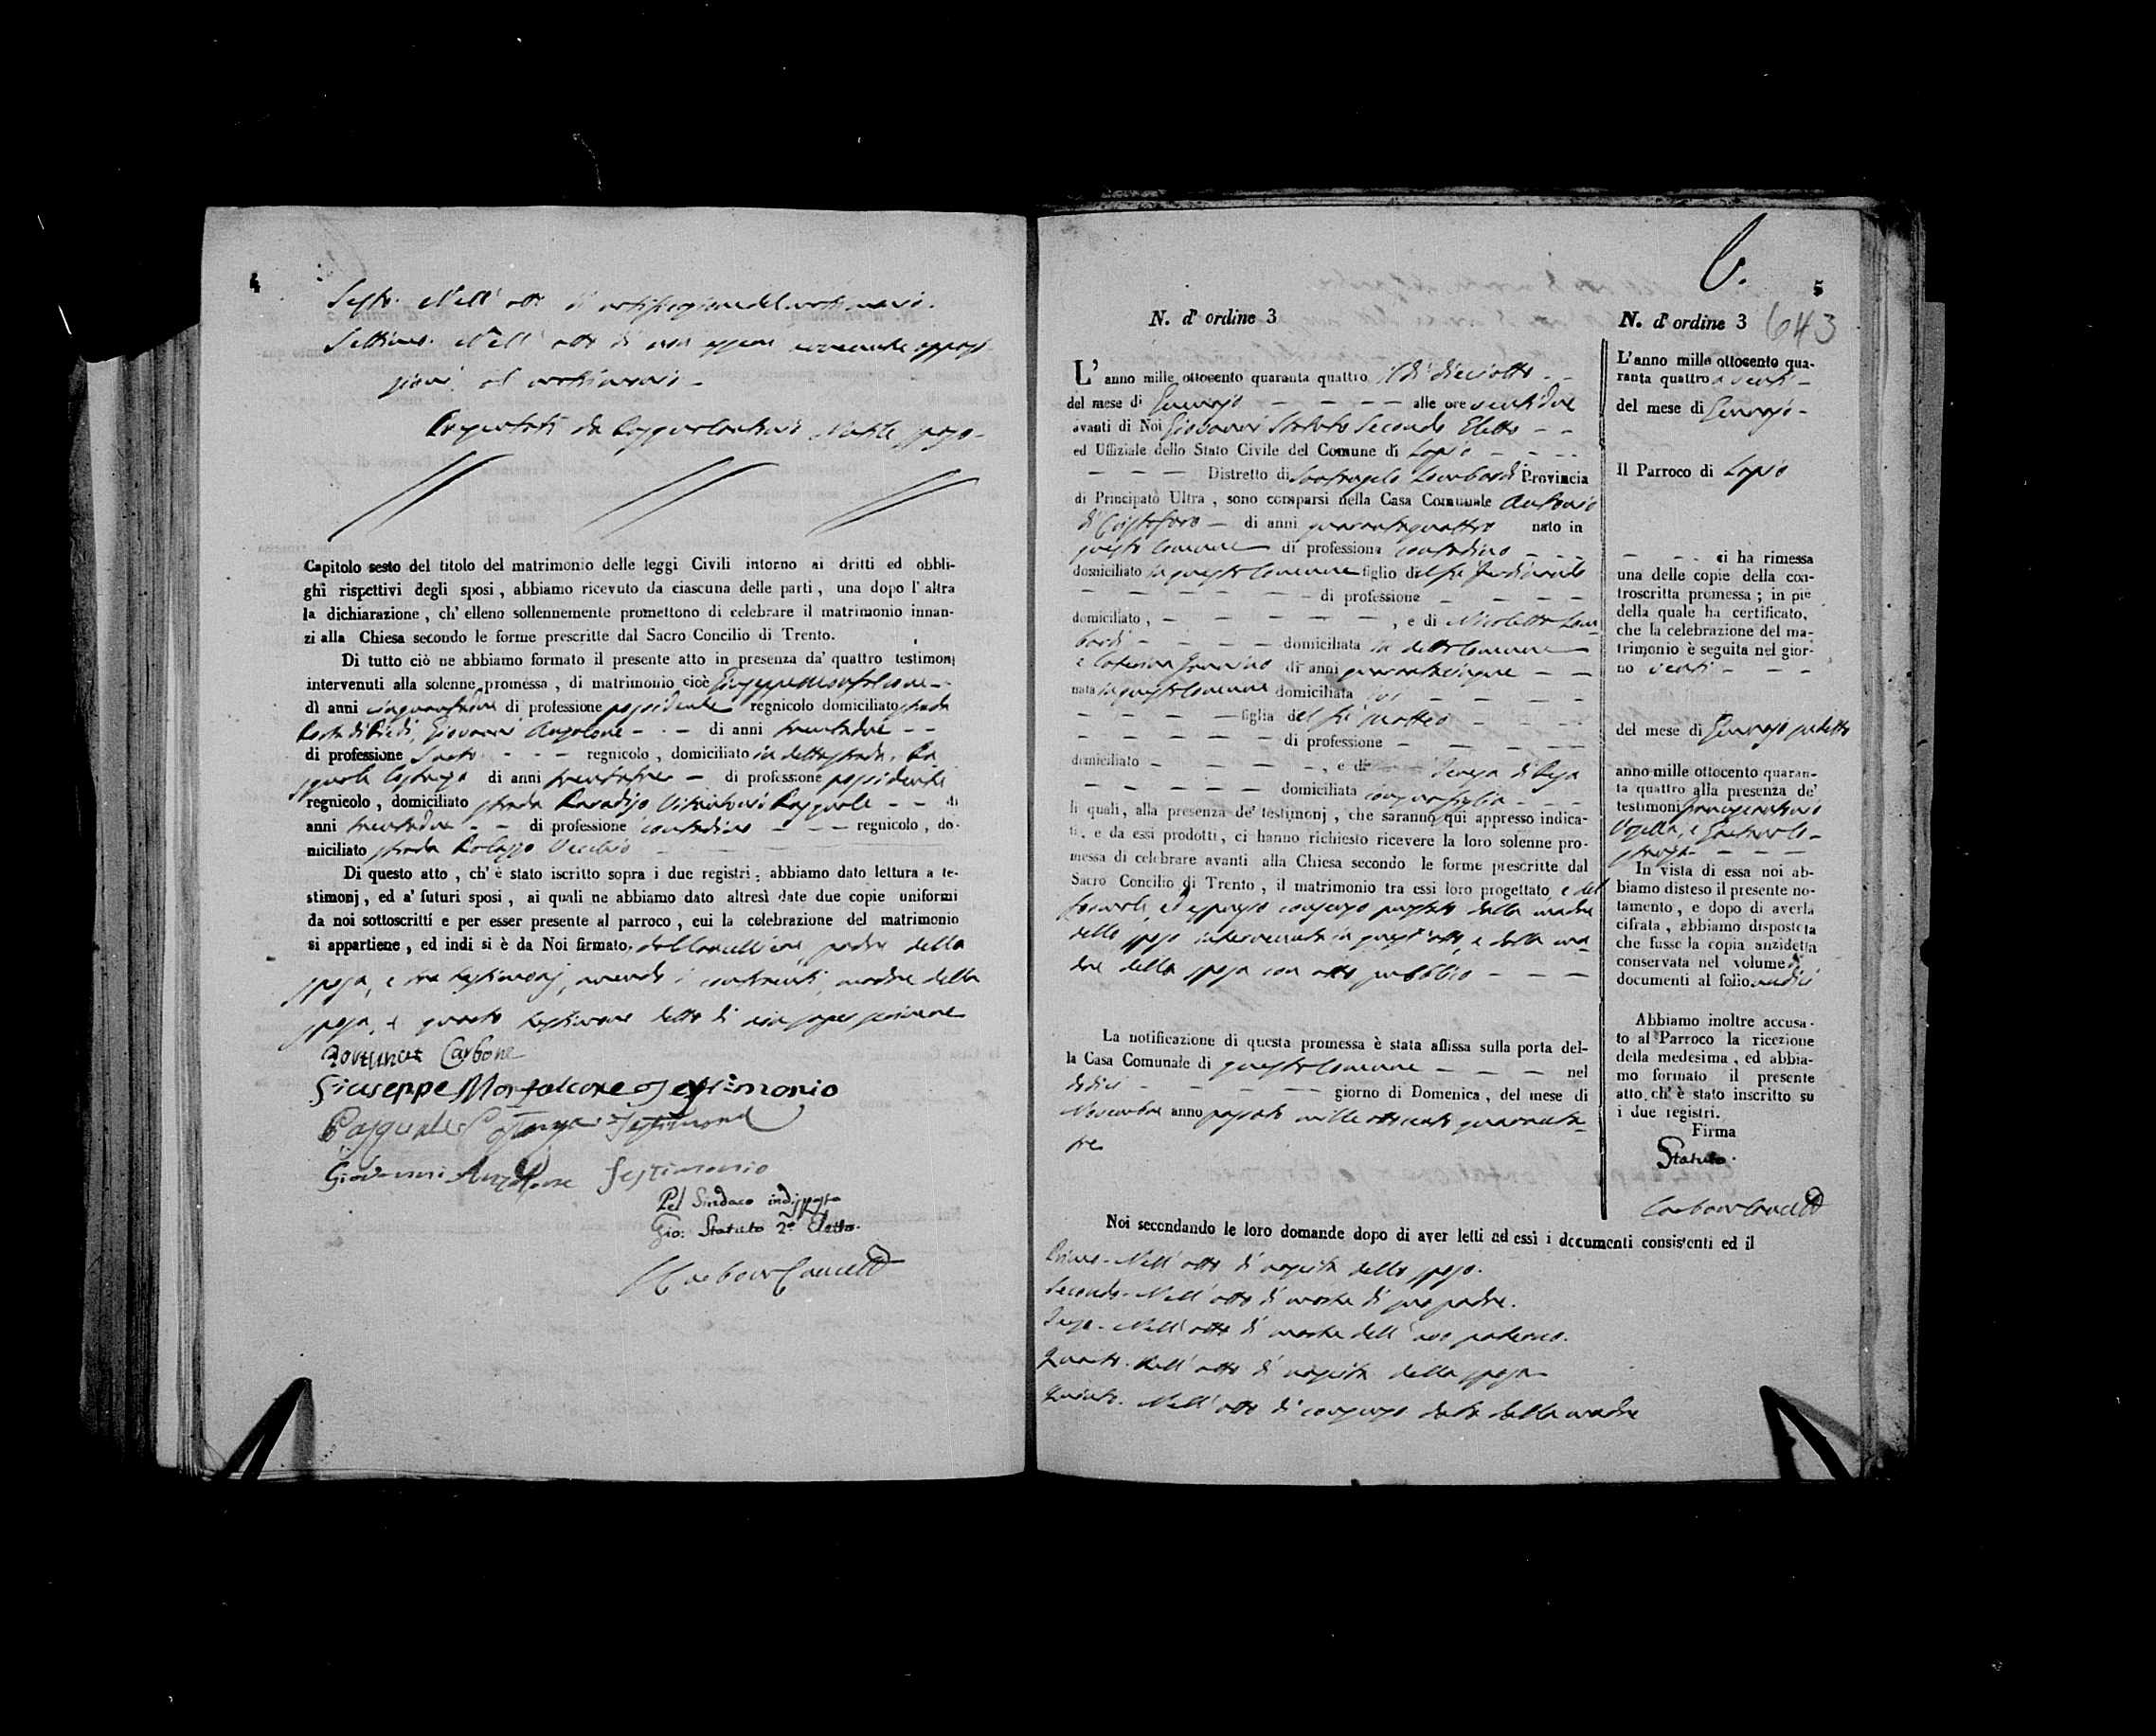 4
Sesto. Nell' atto di notificazione del matrimonio.
Settimo. Nell' atto di non essere avvenute opposi-
zioni al matrimonio -
Capitolo sesto del titolo del matrimonio delle leggi Civili intorno ai dritti ed obbli-
ghi rispettivi degli sposi, abbiamo ricevuto da ciascuna delle parti, una dopo l' altra
la dichiarazione, ch' elleno sollennemente promettono di celebrare il matrimonio innan-
zi alla Chiesa secondo le forme prescritte dal Sacro Concilio di Trento.
Di tutto ciò ne abbiamo formato il presente atto in presenza da' quattro testimonj
intervenuti alla solenne promessa, di matrimonio cioè Giuseppe Monfalcone -
di anni cinquantadue di professione possidente regnicolo domiciliato strada
Giovanni Anzalone - - di anni trentadue - -
di professione Sarto - - - regnicolo, domiciliato in detta strada, Pa
squale di anni trentatre - di professione possidente
regnicolo, domiciliato strada Paradiso Pasquale - - di
anni trentadue - - di professione contadino - - - regnicolo, do-
miciliato strada Palazzo Vecchio
Di questo atto, ch' è stato iscritto sopra i due registri, abbiamo dato lettura a te-
stimonj, ed a' futuri sposi, ai quali ne abbiamo dato altresì date due copie uniformi
da noi sottoscritti e per esser presente al parroco, cui la celebrazione del matrimonio
si appartiene, ed indi si è da Noi firmato, dal Cancelliere, padre della
sposa, e tre testimonj, avendo i contraenti, madre della
sposa, e quarto testimone detto di non saper scrivere
Carbone
Giuseppe Monfalcone testimonio
Pasquale testimone
Giovanni Anzalone testimonio
Pel Sindaco indisposto
Gio: Statuto 2º Eletto.
6.
5
643
N. d' ordine 3
L' anno mille ottocento quaranta quattro il dì dieciotto - -
del mese di Gennajo - - - - alle ore ventidue
avanti di Noi Giovanni Statuto Secondo Eletto - -
ed Uffiziale dello Stato Civile del Comune di Lapio - - - -
- - - Distretto di Santangelo Lombardi Provincia
di Principato Ultra, sono comparsi nella Casa Comunale Antonio
di Cristofaro - di anni quarantaquattro nato in
questo Comune di professione contadino - - - -
domiciliato in questo Comune figlio del fu Ferdinando
- - - - - - di professione - - - -
domiciliato, - - - - - -, e di Nicoletta Lom-
bardi - - - - domiciliata in detto Comune
e Caterina di anni quarantacinque - -
nata in questo Comune domiciliata ivi - - - -
- - - - - figlia del fu Matteo - - - -
- - - - - di professione - - - - -
domiciliato - - - - -, e di Teresa di
- - - - - domiciliata con sua figlia - - -
li quali, alla presenza de' testimonj, che saranno qui appresso indica-
ti, e da essi prodotti, ci hanno richiesto ricevere la loro solenne pro-
messa di celebrare avanti alla Chiesa secondo le forme prescritte dal
Sacro Concilio di Trento, il matrimonio tra essi loro progettato, e del
formale, ed espresso consenso prestato dalla madre
dello sposo intervenuta in quest' atto, e dalla ma-
dre della sposa con atto pubblico - - -
La notificazione di questa promessa è stata affissa sulla porta del-
la Casa Comunale di questo Comune - - - - nel
- - - giorno di Domenica, del mese di
Novembre anno passato mille ottocento quaranta-
tre
Noi secondando le loro domande dopo di aver letti ad essi i documenti consistenti ed il
Primo. Nell' atto di nascita dello sposo.
Secondo. Nell' atto di morte di suo padre.
Terzo. Nell' atto di morte dell' avo paterno.
Quarto. Nell' atto di nascita della sposa
Quinto. Nell' atto di consenso dato dalla madre
N. d' ordine 3
L' anno mille ottocento qua-
ranta quattro a venti -
del mese di Gennajo -
Il Parroco di Lapio
- - - ci ha rimessa
una delle copie della con-
troscritta promessa; in piè
della quale ha certificato,
che la celebrazione del ma-
trimonio è seguita nel gior-
no venti - - -
del mese di Gennajo sudetto
anno mille ottocento quaran-
ta quattro alla presenza de'
testimonj
In vista di essa noi ab-
biamo disteso il presente no-
tamento, e dopo di averla
cifrata, abbiamo disposto
che fusse la copia anzidetta
conservata nel volume di
documenti al folio
Abbiamo inoltre accusa-
to al Parroco la ricezione
della medesima, ed abbia-
mo formato il presente
atto, ch' è stato inscritto su
i due registri.
Firma
Statuto.